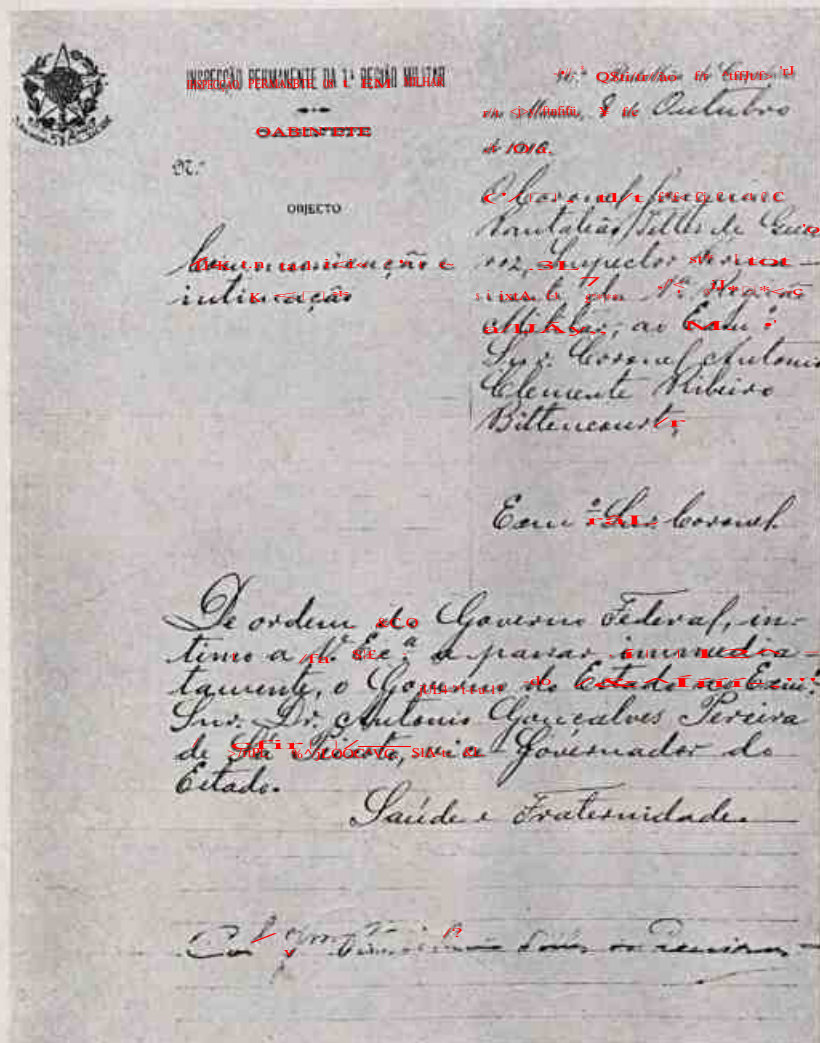 INSPECÇÃO PERMANENTE DA 1ª REGIÃO MILITAR
GABINETE
N.º
OBJECTO
Communicação e
intimação
Manáos, 8 de Outubro
de 1910.
O Coronel
Pantaleão Telles de Quei
roz, Inspector
da 1ª Região
Militar, ao Exmº
Snr. Coronel Antonio
Clemente Ribeiro
Bittencourt,
Exmº Snr. Coronel
De ordem do Governo Federal, in-
timo a V. Excª a passar immedia-
tamente, o Governo do Estado ao Exmº
Snr. Dr. Antonio Gonçalves Pereira
de Sá Peixoto, vice Governador do
Estado.
Saúde e Fraternidade.